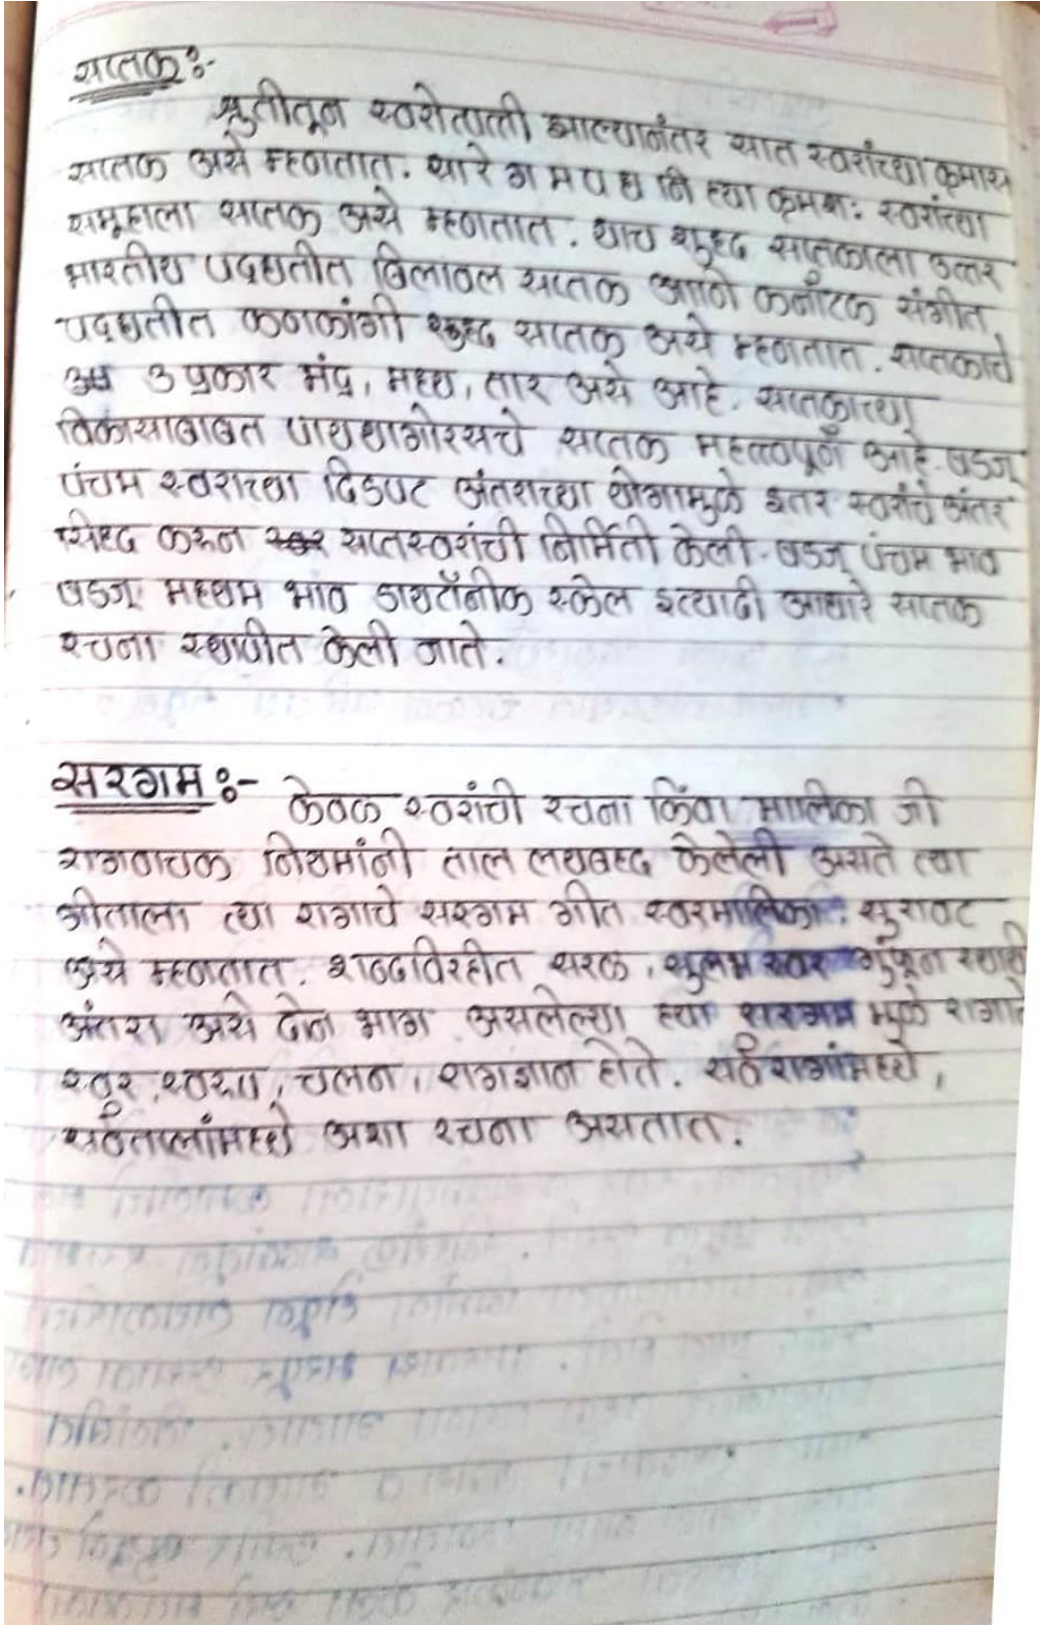 सप्तक :-
श्रुतीतून स्वरोत्पत्ती झाल्यानंतर सात स्वरांच्या क्रमास
सप्तक असे म्हणतात. सा रे ग म प ध नि ह्या क्रमशः स्वरांच्या
समूहाला सप्तक असे म्हणतात. याच शुद्ध सप्तकाला उत्तर
भारतीय पद्धतीत बिलावल सप्तक आणि कर्नाटक संगीत
पद्धतीत कनकांगी शुद्ध सप्तक असे म्हणतात. सप्तकाचे
3 प्रकार मंद्र, मध्य, तार असे आहे. सप्तकाच्या
विकासाबाबत पायथागोरसचे सप्तक महत्त्वपूर्ण आहे. षडज्
पंचम स्वराच्या दिडपट अंतराच्या योगामुळे इतर स्वरांचे अंतर
सिद्ध करून सप्तस्वरांची निर्मिती केली. षडज् पंचम भाव
षडज् मध्यम भाव डायटॉनीक स्केल इत्यादी आधारे सप्तक
रचना स्थापीत केली जाते.
सरगम :- केवळ स्वरांची रचना किंवा मालिका जी
रागवाचक नियमांनी ताल लयबद्ध केलेली असते त्या
गीताला त्या रागाचे सरगम गीत स्वरमालिका. सुरावट
असे म्हणतात. शब्दविरहीत सरळ, सुलभ स्वर गुंफून स्थायी
अंतरा असे दोन भाग असलेल्या ह्या सरगम मुळे रागाचे
स्वर, स्वरूप, चलन, रागज्ञान होते. सर्व रागांमध्ये,
सर्वतालांमध्ये अशा रचना असतात.